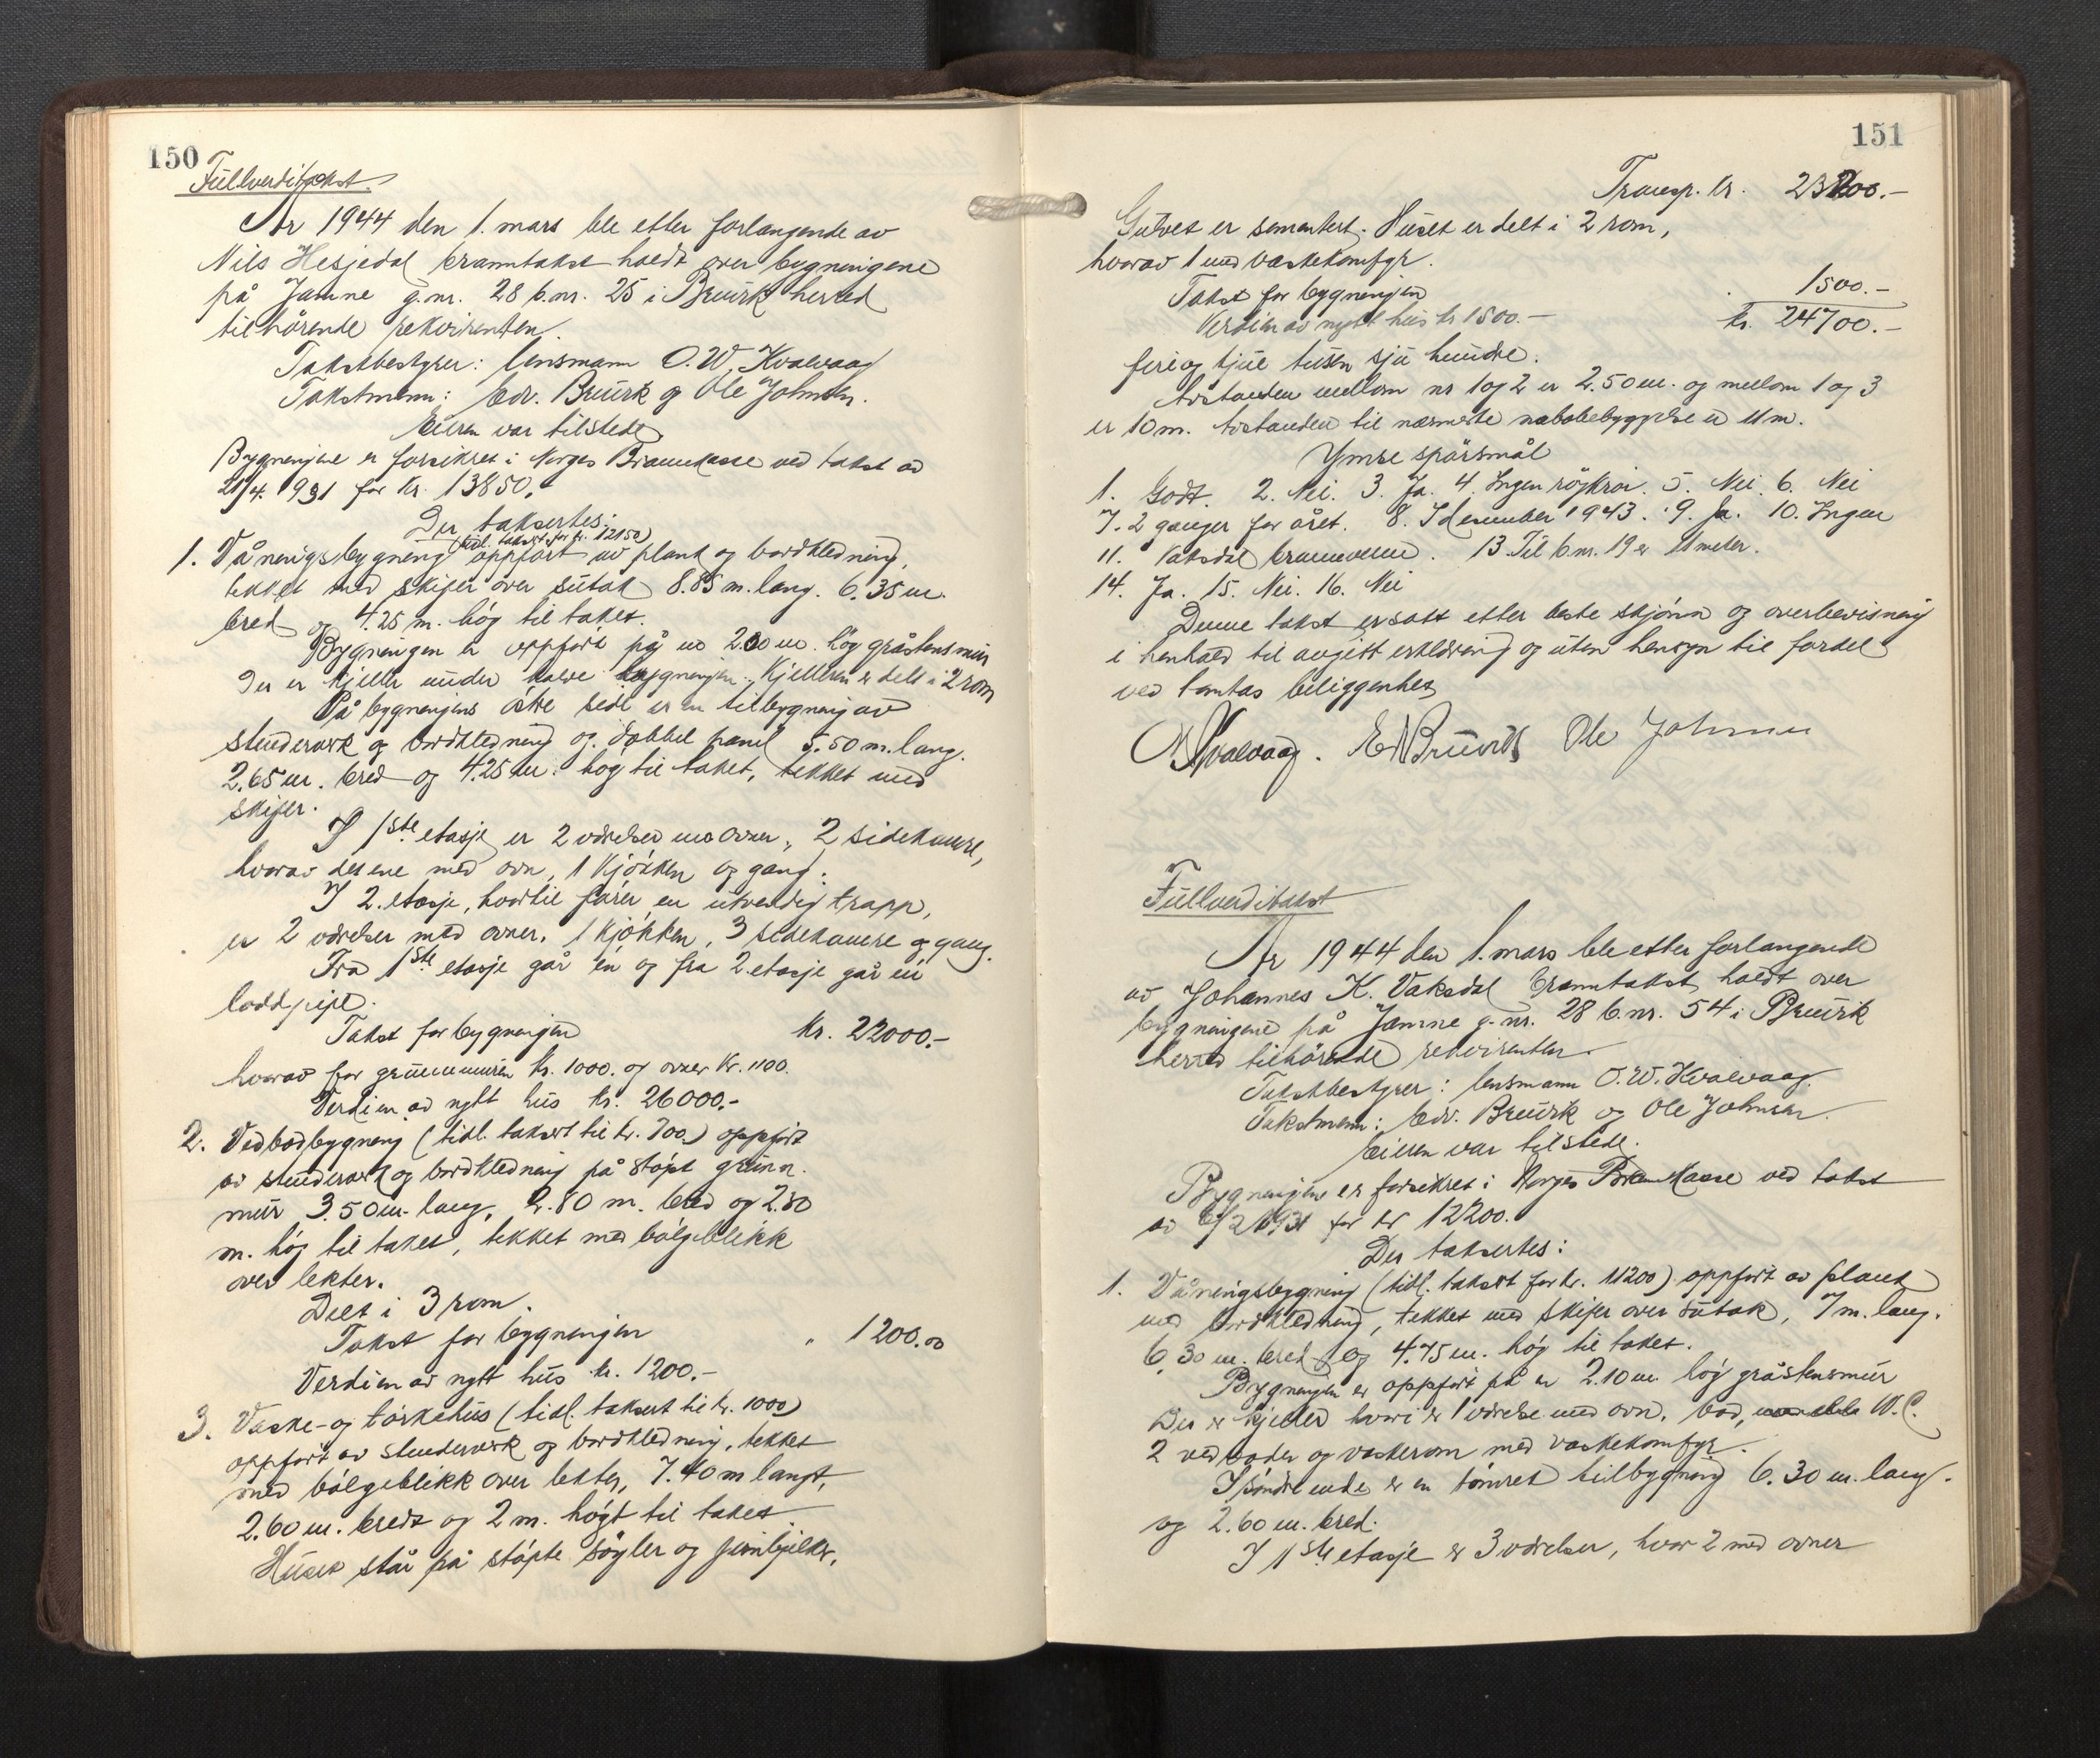 150
Fullverditakst.
År 1944 den 1. mars ble etter forlangende av
Nils Hesjedal branntakst holdt over bygningene
på Jamne g.nr. 28 b.nr. 25 i Bruvik herred
tilhörende rekvirenten.
Takstbestyrer: lensmann O. W. Kvalvaag
Takstmenn: Edv. Bruvik og Ole Johnsen.
Eieren var tilstede.
Bygningene er forsikret i Norges Brannkasse ved takst av
21/4. 1931 for kr. 13850.-
Der taksertes:
(tidl. taksert for kr. 12150)
1. Våningsbygning oppfört av plank og bordkledning,
tekket med skifer over sutak 8.85 m. lang. 6.35 m.
bred og 4.25 m. hög til taket.
Bygningen er oppfört på en 2.00 m. hög gråstensmur
Der er kjeller under halve bygningen. Kjelleren er delt i 2 rom
På bygningens östre side er en tilbygning av
stenderverk og bordkledning og dobbel panel 5.50 m. lang.
2.65 m. bred og 4.25 m. hög til taket, tekket med
skifer.
I 1ste etasje er 2 værelser med ovner, 2 sidekamre,
hvorav det ene med ovn, 1 kjökken og gang.
I 2. etasje, hvortil förer en utvendig trapp,
er 2 værelser med ovner, 1 kjökken, 3 sidekamre og gang.
Fra 1ste etasje går en og fra 2. etasje går en
loddpipe.
Takst for bygningen kr. 22000.-
hvorav for grunnmuren kr. 1000. og ovner kr. 1100.
Verdien av nytt hus kr. 26000.-
2. Vedbodbygning (tidl. taksert til kr. 700.) oppfört
av stenderverk og bordkledning på stöpt grunn-
mur 3.50 m. lang, 2.80 m. bred og 2.50
m. hög til taket, tekket med bölgeblikk
over lekter.
Delt i 3 rom.
Takst for bygningen " 1200.00
Verdien av nytt hus kr. 1200.-
3. Vaske- og törkehus (tidl. taksert til kr. 1000)
oppfört av stenderverk og bordkledning, tekket
med bölgeblikk over lekter, 7.40 m langt,
2.60 m. bredt og 2 m. högt til taket
Huset står på stöpte söyler og jernbjelker.
151
Transp. kr. 23200.-
Gulvet er sementert. Huset er delt i 2 rom,
hvorav 1 med vaskekomfyr.
Takst for bygningen 1500.-
Verdien av nytt hus kr 1500.- kr. 24700.-
fire og tjue tusen sju hundre.
Avstanden mellom nr 1 og 2 er 2.50 m. og mellom 1 og 3
er 10 m. Avstanden til nærmeste nabobebyggelse er 11 m.
Ymse spörsmål
1. Godt. 2. Nei. 3. Ja. 4. Ingen 5. Nei. 6. Nei
7. 2 ganger for året. 8. I desember 1943. 9. Ja. 10. Ingen
11. Vaksdal brannvesen. 13. Til b.nr. 19 er 11 meter.
14. Ja. 15. Nei. 16. Nei
Denne takst er satt etter beste skjönn og overbevisning
i henhold til avgitt erklæring og uten hensyn til fordel
ved tomtas beliggenhet
O W Kvalvaag. Edv Bruvik Ole Johnsen
Fullverditakst
År 1944 den 1. mars ble etter forlangende
av Johannes K. Vaksdal branntakst holdt over
bygningene på Jamne g.nr. 28 b.nr. 54 i Bruvik
herred tilhörende rekvirenten.
Takstbestyrer: lensmann O. W. Kvalvaag.
Takstmenn: Edv. Bruvik og Ole Johnsen.
Eieren var tilstede.
Bygningene er forsikret i Norges Brannkasse ved takst
av 6/2 1931 for kr 12200.
Der taksertes:
1. Våningsbygning (tidl. taksert for kr. 11200) oppfört av plank
med bordkledning, tekket med skifer over sutak, 7 m. lang.
6.30 m. bred og 4.75 m. hög til taket.
Bygningen er oppfört på en 2.10 m. hög gråstensmur
Der er kjeller hvori er 1 værelse med ovn, bad, W.C.
2 vedboder og vaskerom med vaskekomfyr.
I söndre ende er en tömret tilbygning 6.30 m. lang.
og 2.60 m. bred.
I 1ste etasje er 3 værelser, hvor 2 med ovner